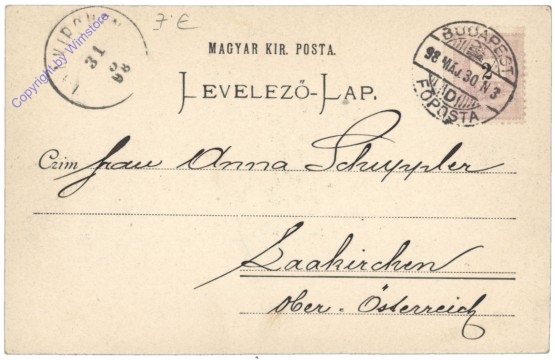 7.- E
31
5
98
Copyright by Wimstore
MAGYAR KIR. POSTA.
LEVELEZŐ-LAP.
BUDAPEST
98 MÁJ. 30. N3
FŐPOSTA
2
Czim Frau Anna Schuppler
Laakirchen
Ober-Österreich